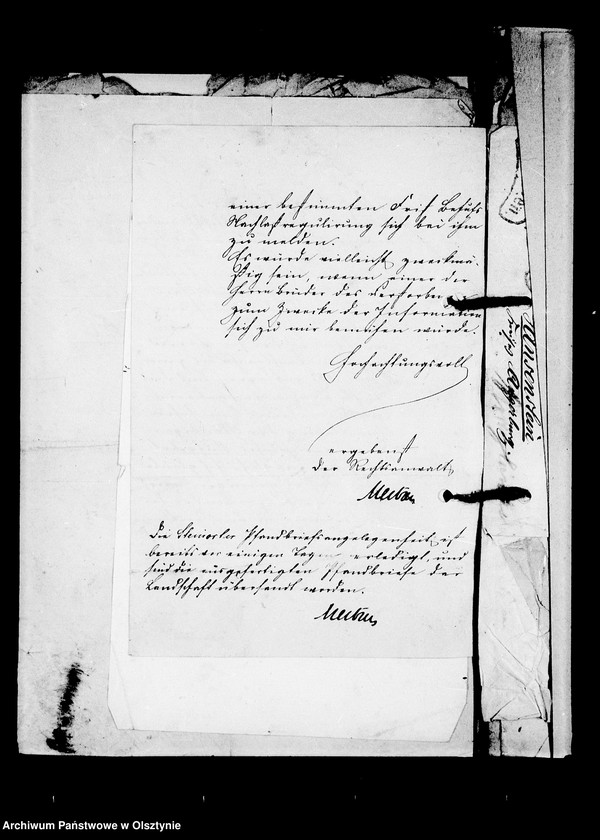 einer bestimmten Frist Behufs
Nachlaßregulirung sich bei ihm
zu melden.
Es würde vielleicht zweckmä-
ßig sein, wenn einer der
Herrn Brüder des Verstorbenen
zum Zwecke der Information
sich zu mir bemühen würde.
Hochachtungsvoll
ergebenst
der Rechtsanwalt
Die Steinorter Pfandbriefsangelegenheit ist
bereits vor einigen Tagen erledigt, und
sind die ausgefertigten Pfandbriefe der
Landschaft übersandt worden.
Archiwum Państwowe w Olsztynie